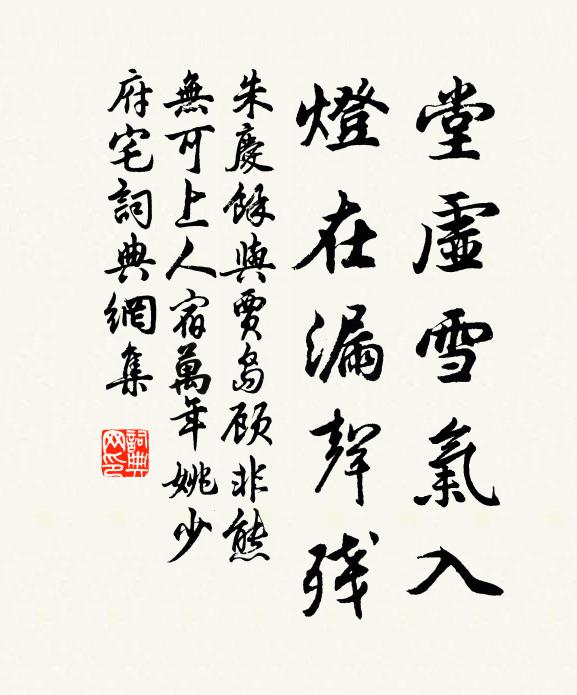 堂虛雪氣入
燈在漏聲殘
朱慶餘與賈島顾非熊
無可上人宿萬年姚少
府宅詞典網集
詞典網印